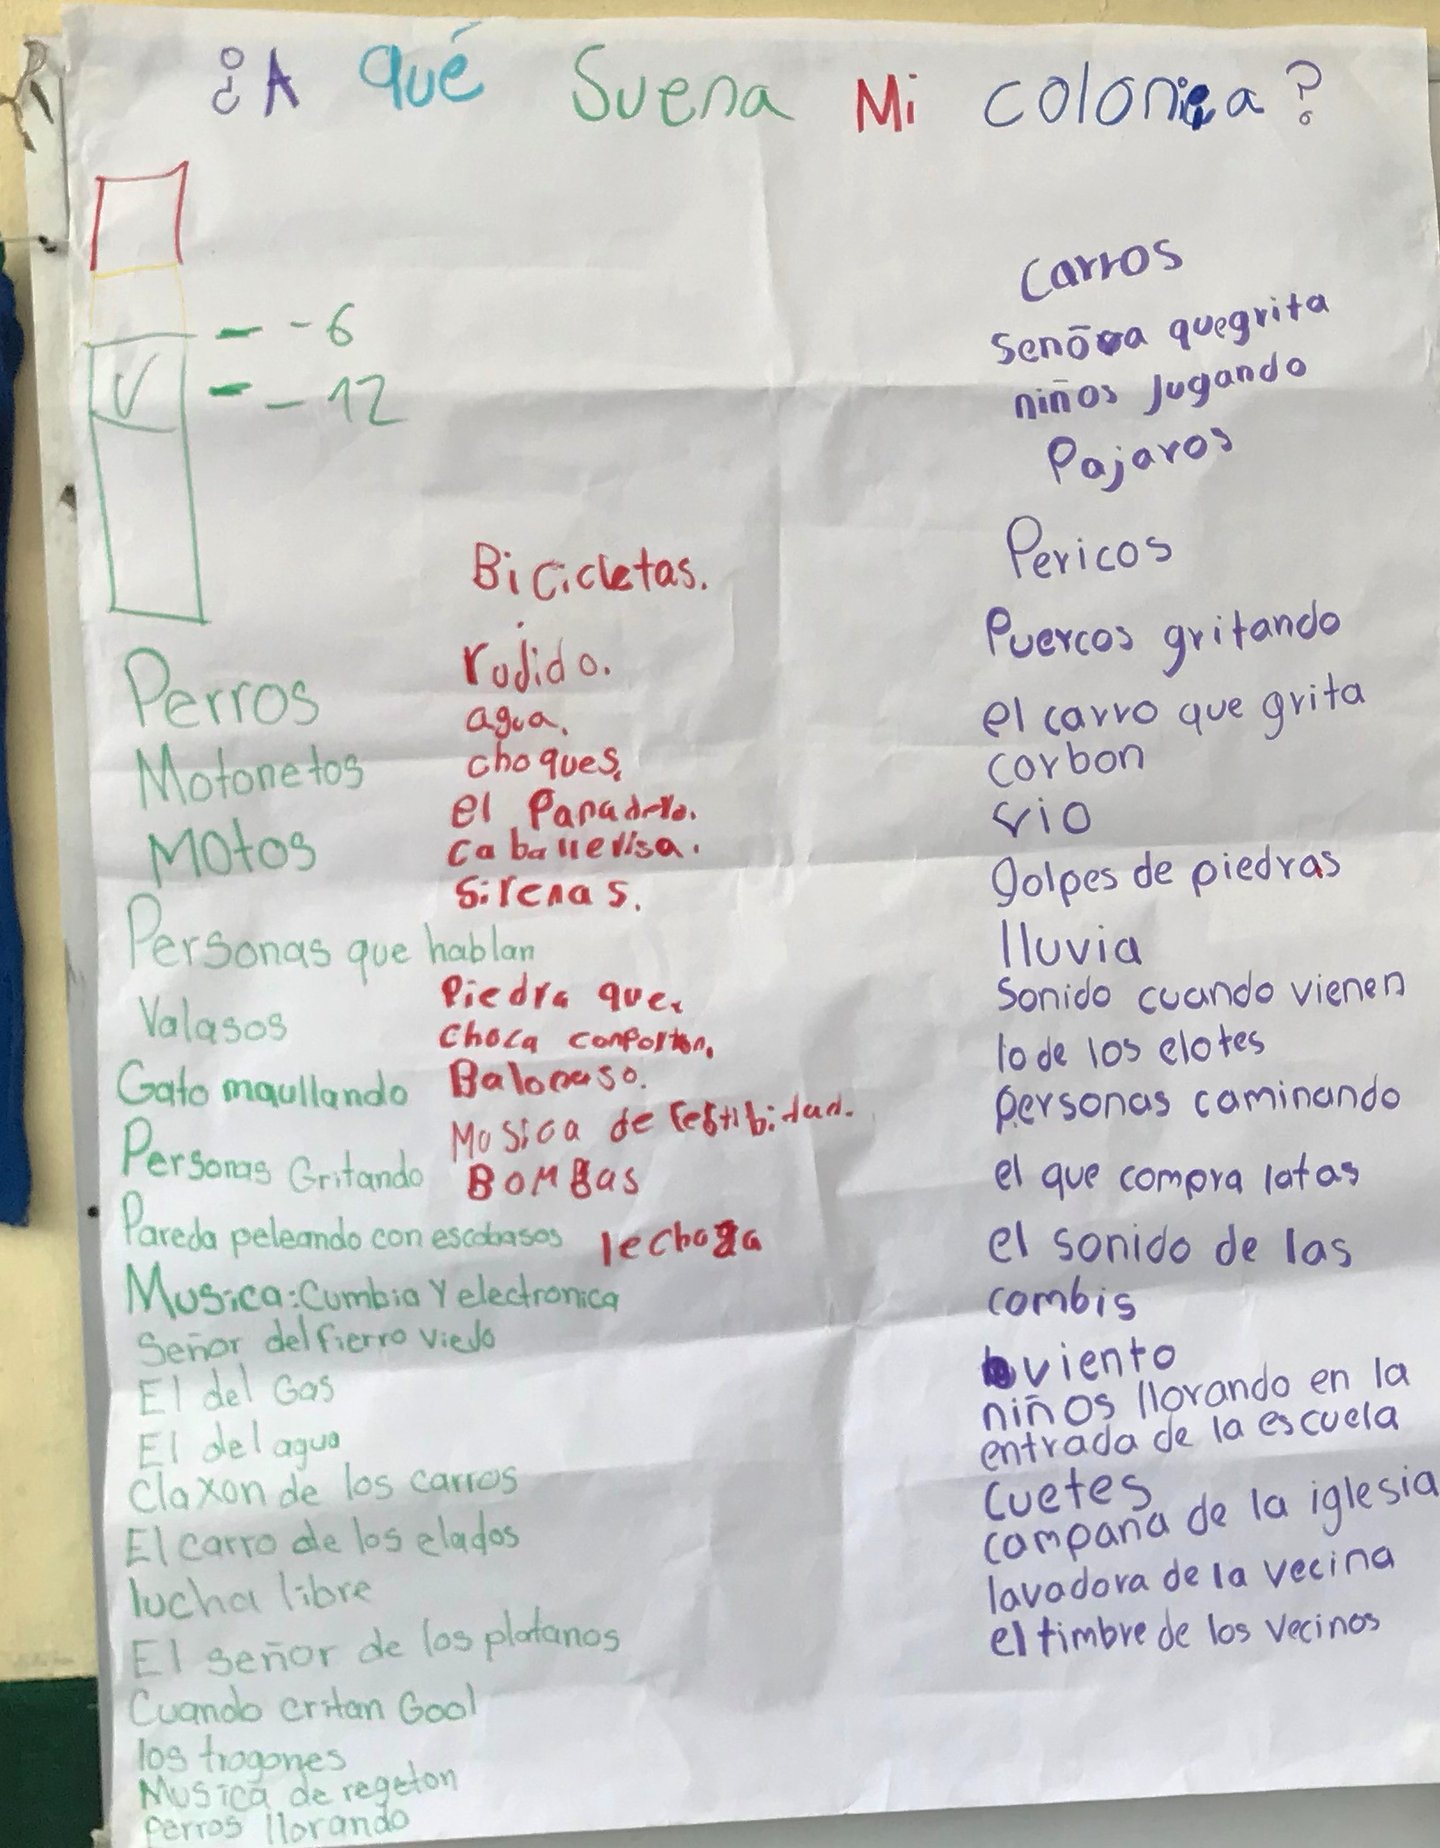 ¿A qué Suena Mi colonia?
- -6
- -12
Perros
Motonetos
Motos
Personas que hablan
Valasos
Gato maullando
Personas Gritando
Pareda peleando con escobasos
Musica: Cumbia Y electronica
Señor del fierro viejo
El del Gas
El del agua
Claxon de los carros
El carro de los elados
lucha libre
El señor de los platanos
Cuando critan Gool
los tragones
Musica de regeton
perros llorando
Bicicletas.
rujido.
agua.
choques.
el Panadero.
caballerisa.
Sirenas.
Piedra que
choca conporton.
Balonaso.
Musica de festibidad.
BOMBas
lechoza
Carros
Señora quegrita
niños Jugando
Pajaros
Pericos
Puercos gritando
el carro que grita
carbon
rio
golpes de piedras
lluvia
Sonido cuando vienen
lo de los elotes
personas caminando
el que compra latas
el sonido de las
combis
viento
niños llorando en la
entrada de la escuela
Cuetes
campana de la iglesia
lavadora de la vecina
el timbre de los vecinos